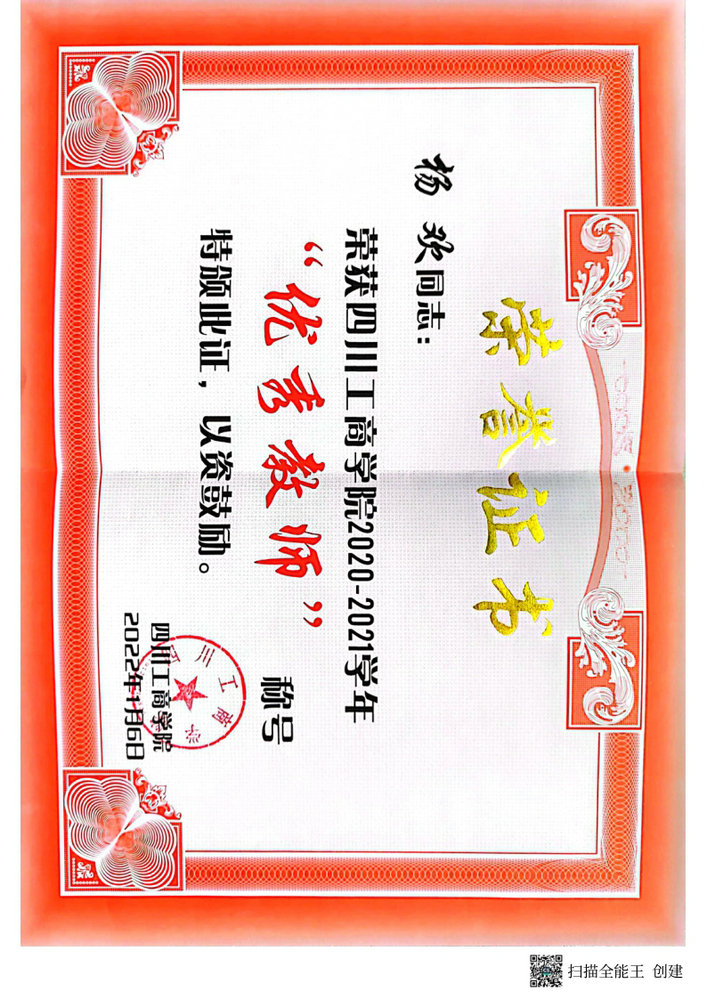 荣誉证书
杨欢同志：
荣获四川工商学院2020-2021学年
“优秀教师”称号
特颁此证，以资鼓励。
四川工商学院
2022年1月6日
扫描全能王 创建